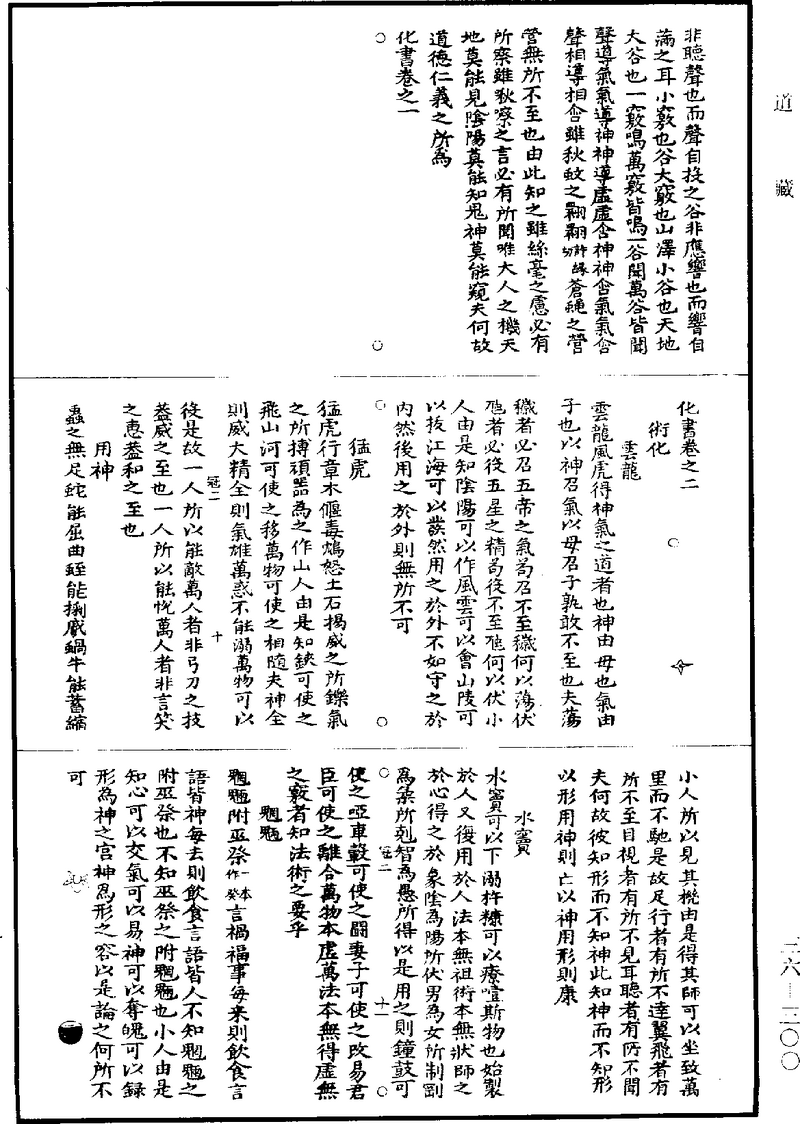 道藏
非聽聲也而聲自投之谷非應響也而響自
滿之耳小竅也谷大竅也山澤小谷也天地
大谷也一竅鳴萬竅皆鳴一谷聞萬谷皆聞
聲導氣氣導神神導虛虛含神神含氣氣含
聲聲相導相含雖秋蚊之翾翾許緣切蒼蠅之營
營無所不至也由此知之雖絲毫之慮必有
所察雖秋嚓之言必有所聞唯大人之機天
地莫能見陰陽莫能知鬼神莫能窺夫何故
道德仁義之所為
化書卷之一
化書卷之二
術化
雲龍
雲龍風虎得神氣之道者也神由母也氣由
子也以神召氣以母召子孰敢不至也夫蕩
穢者必召五帝之氣苟召不至穢何以蕩伏
虺者必役五星之精苟役不至虺何以伏小
人由是知陰陽可以作風雲可以會山陵可
以拔江海可以發然用之於外不如守之於
內然後用之於外則無所不可
猛虎
猛虎行草木偃毒鴆怒土石揭威之所鑠氣
之所搏頑嚚為之作山人由是知鋏可使之
飛山河可使之移萬物可使之相隨夫神全
則威大精全則氣雄萬惑不能溺萬物可以
冠二 十
役是故一人所以能敵萬人者非弓刀之技
蓋威之至也一人所以能悅萬人者非言笑
之惠蓋和之至也
用神
蟲之無足蛇能屈曲蛭能掬蹙蝸牛能蓄縮
小人所以見其機由是得其師可以坐致萬
里而不馳是故足行者有所不達翼飛者有
所不至目視者有所不見耳聽者有所不聞
夫何故彼知形而不知神此知神而不知形
以形用神則亡以神用形則康
水竇
水竇可以下溺杵糠可以療噎斯物也始製
於人又復用於人法本無祖術本無狀師之
於心得之於象陰為陽所伏男為女所制剛
為柔所剋智為愚所得以是用之則鐘鼓可
冠二 十一
使之啞車轂可使之鬭妻子可使之改易君
臣可使之離合萬物本虛萬法本無得虛無
之竅者知法術之要乎
魍魎
魍魎附巫祭一本作癸言禍福事每来則飲食言
語皆神每去則飲食言語皆人不知魍魎之
附巫祭也不知巫祭之附魍魎也小人由是
知心可以交氣可以易神可以奪魄可以錄
形為神之宮神為形之容以是論之何所不
可
三六—三〇〇